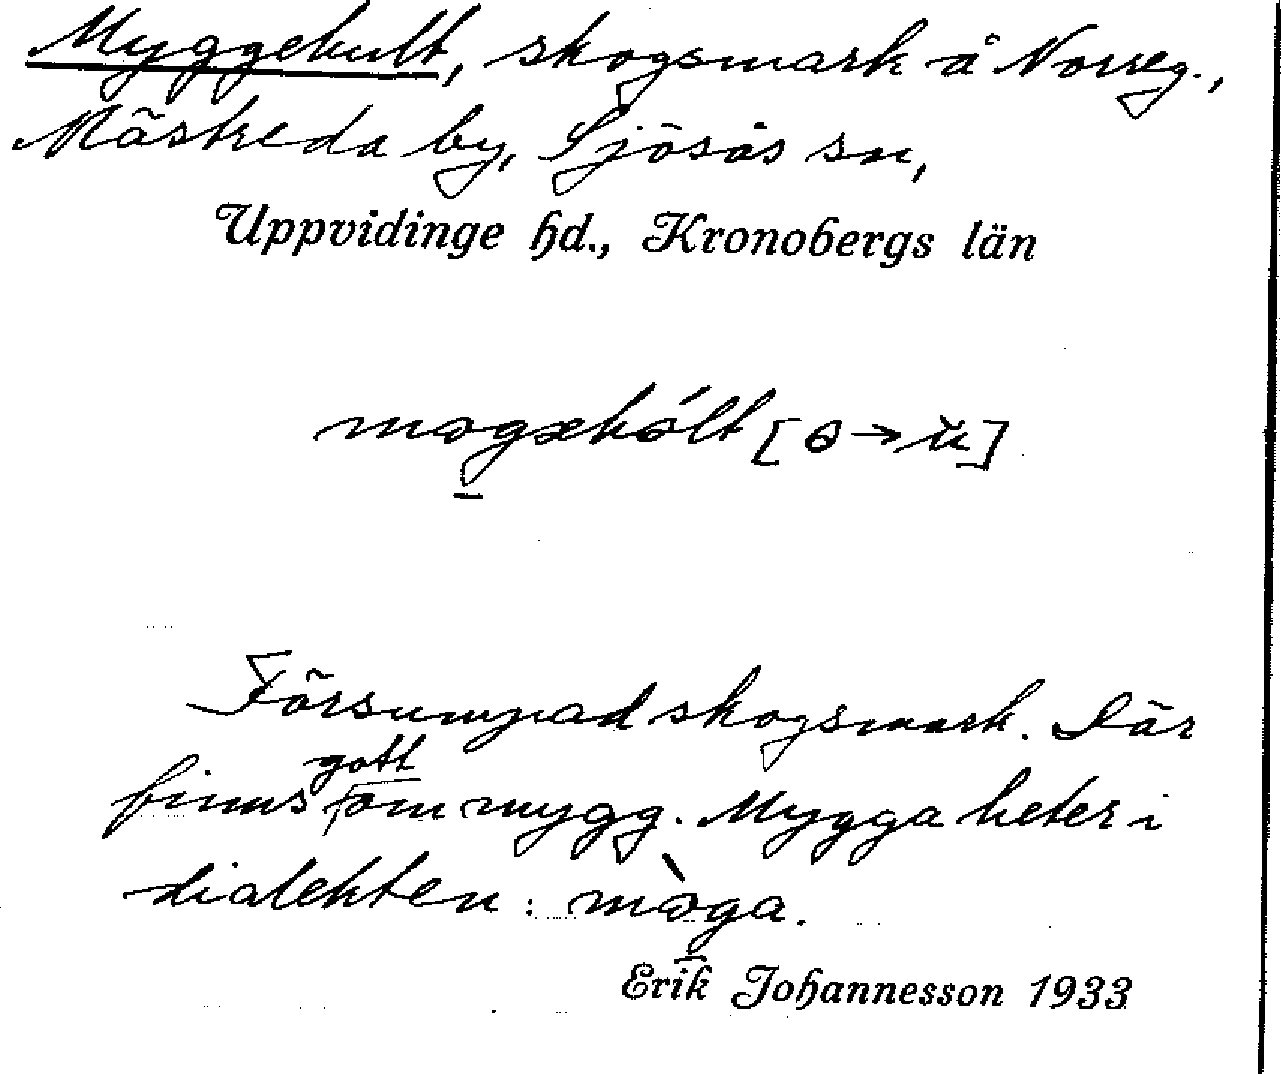 Myggebult, skogsmark å Norreg.,
Mästreda by, Sjösås sn,
Uppvidinge hd., Kronobergs län
Försumpad skogsmark. Där
finns gott om mygg. Mygga heter i
dialekten: məga.
Erik Johannesson 1933